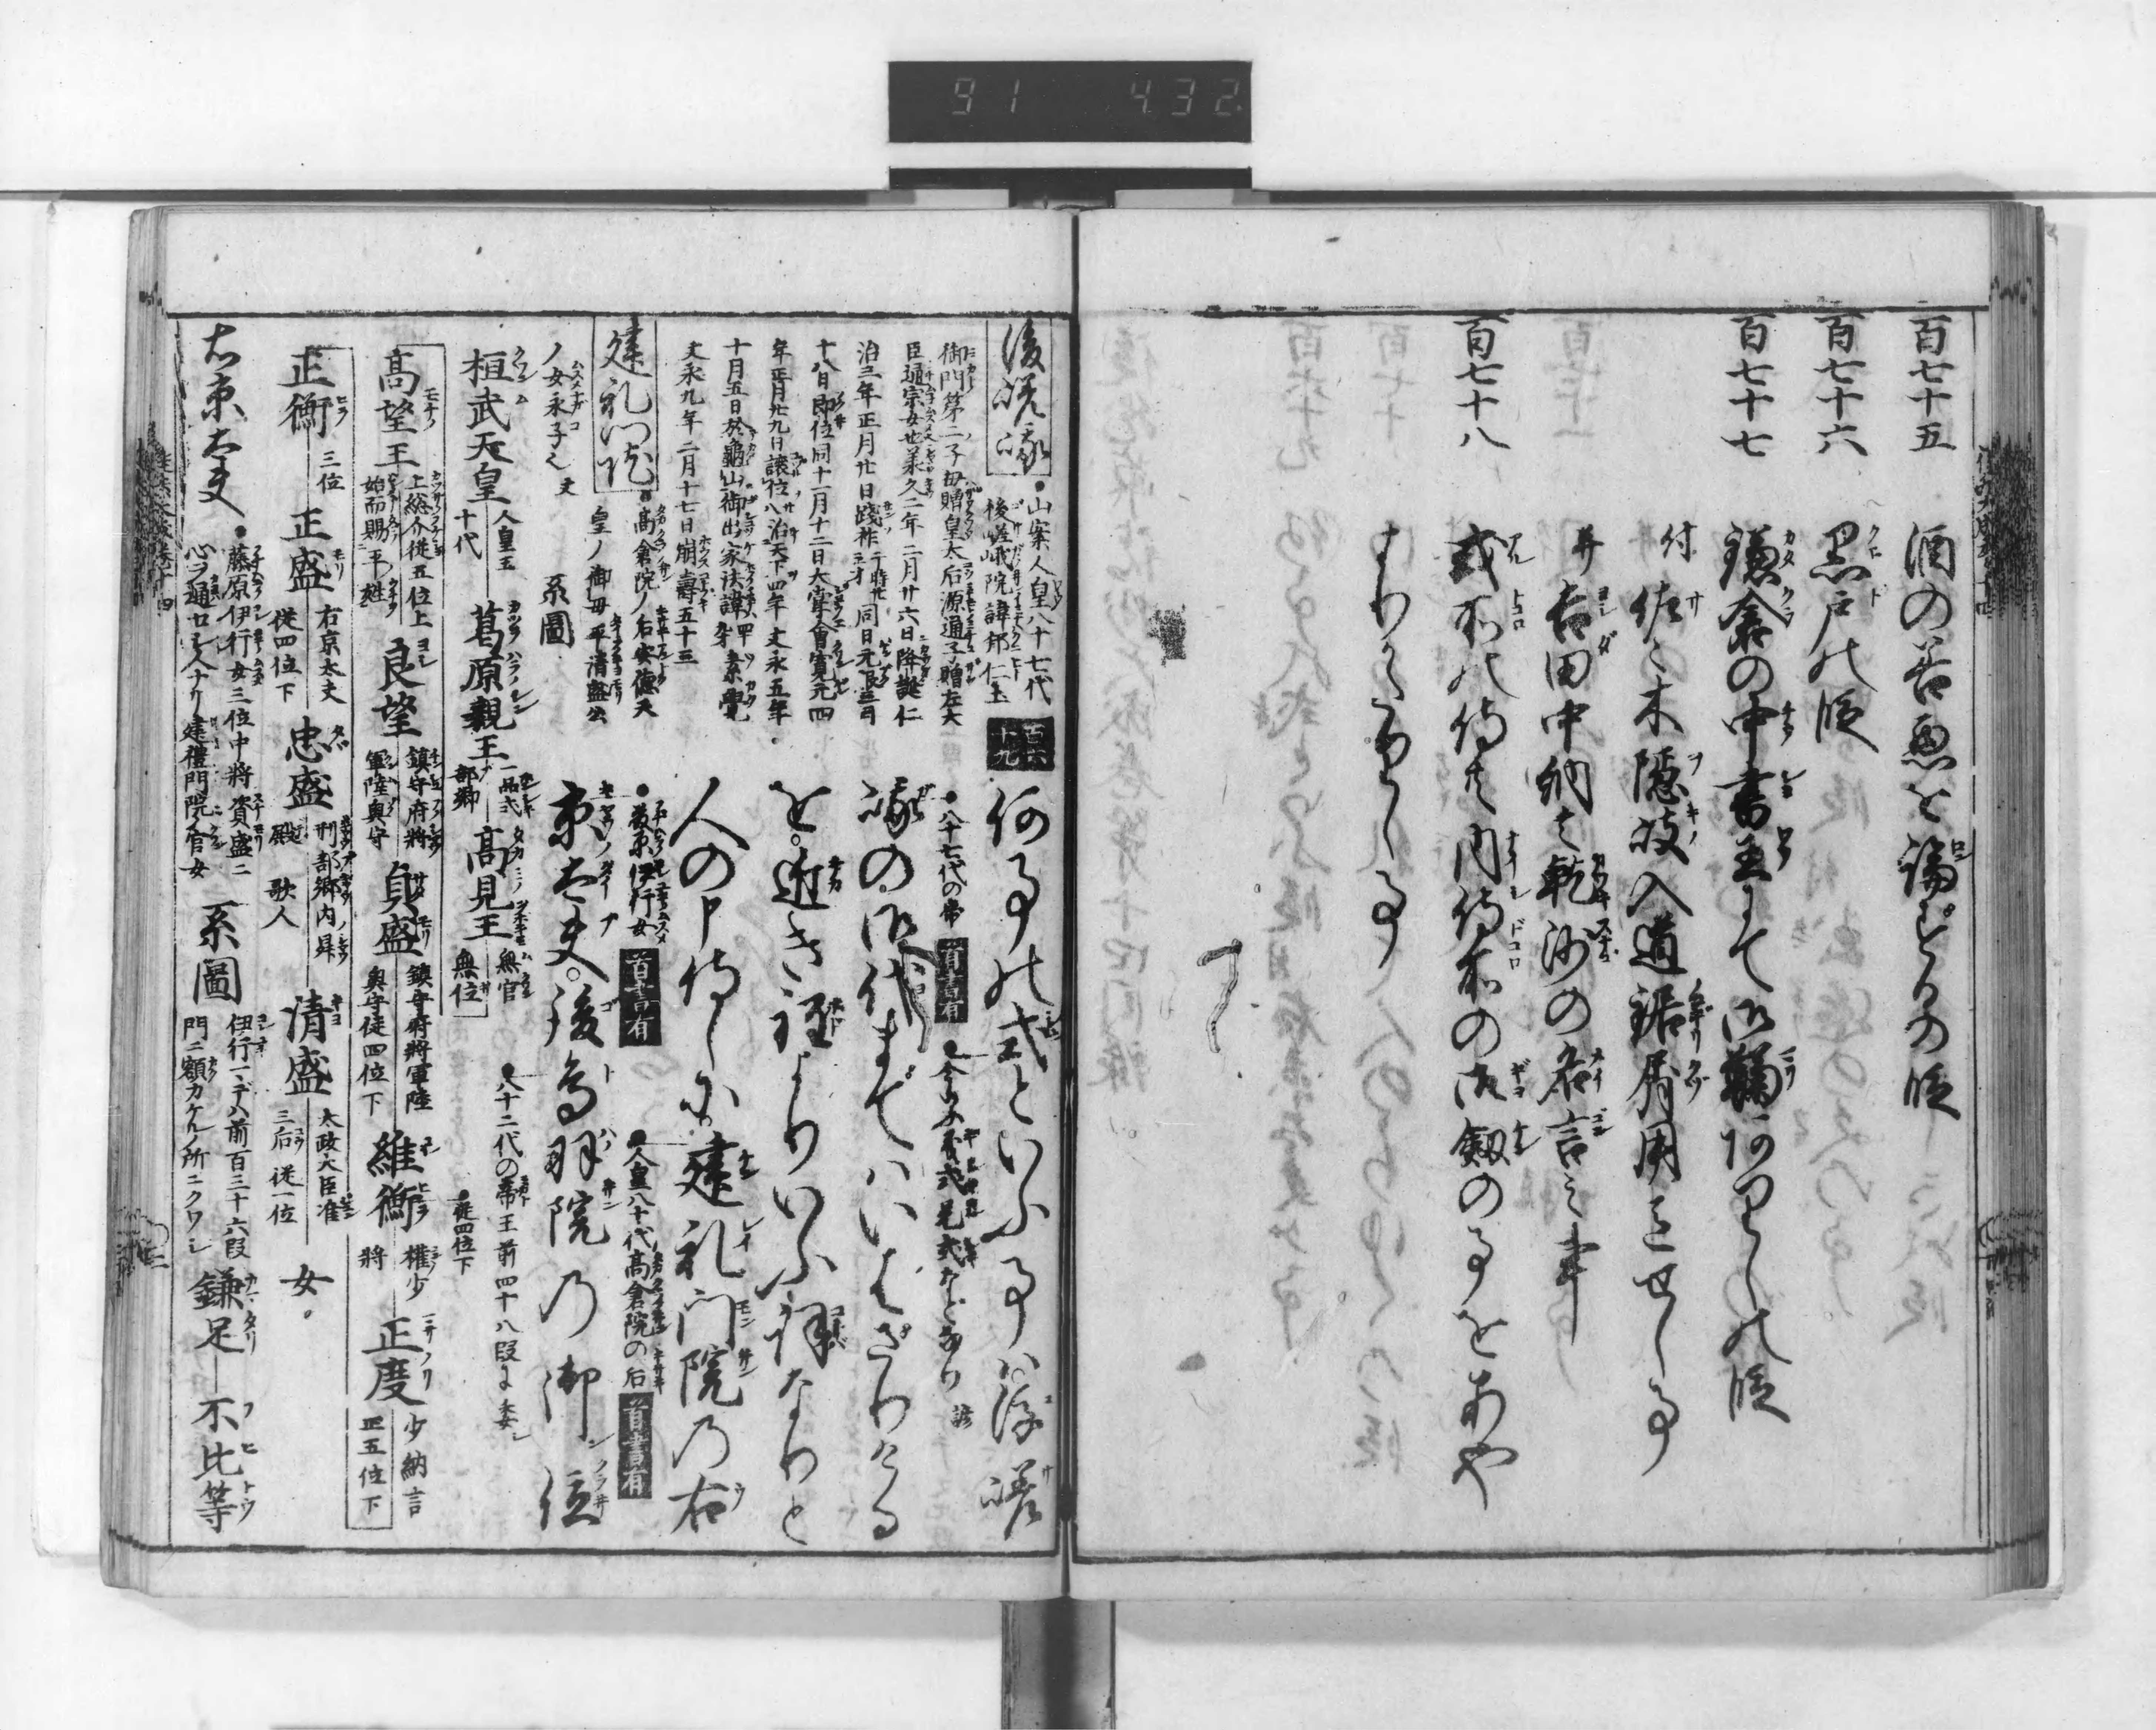 91 432
百七十五　酒の善悪を論ずるの段
百七十六　黒戸の段
百七十七　鎌倉の中書王にて御鞠ありしの段
付佐々木隠岐入道鋸屑用意せし事
并吉田中納言乾沙の名言之事
百七十八　或所の侍共内侍所の御剱の事をあや
まりてゐひし事
後嵯峨
山案人皇八十七代
後嵯峨院諱邦仁土
御門第二子母贈皇太后源通子贈左大
臣通宗女也承久二年二月廿六日降誕仁
治三年正月廿日践祚
同日元服三月
十八日即位同十一月十二日大嘗會寛元四
年正月廿九日譲位治天下四年文永五年
十月五日於龜山御出家法諱素覺
文永九年二月十七日崩壽五十三
建礼門院
高倉院ノ后安徳天
皇ノ御母平清盛公
ノ女永子也
系圖
桓武天皇
人皇五
十代
葛原親王
一品式
部卿
高見王
無官
無位
高望王
上総介従五位上
始而賜平姓
良望
鎮守府将
軍陸奥守
貞盛
鎮守府將軍陸
奥守従四位下
維衡
權少
將
正度
少納言
正五位下
正衡
三位
正盛
右京太夫
従四位下
忠盛
刑部卿内昇
殿　歌人
清盛
太政大臣准
三后従一位
女
右京大夫
藤原伊行女三位中將資盛ニ
心ヲ通セシ人ナリ建禮門院ノ官女
系圖
伊行マデハ前百三十六段
門ニ額カケル所ニクワシ
鎌足
不比等
百六十九
何事の式といふ事は後嵯
八十七代の帝
首書有
峨の御代まではいはざりける
を。近き程よりいふ詞なりと
人の申侍しに建礼門院の右
藤原伊行女
首書有
人皇八十代高倉院の后
首書有
京大夫。後鳥羽院の御位
八十二代の帝王前四十八段に委し
従四位下